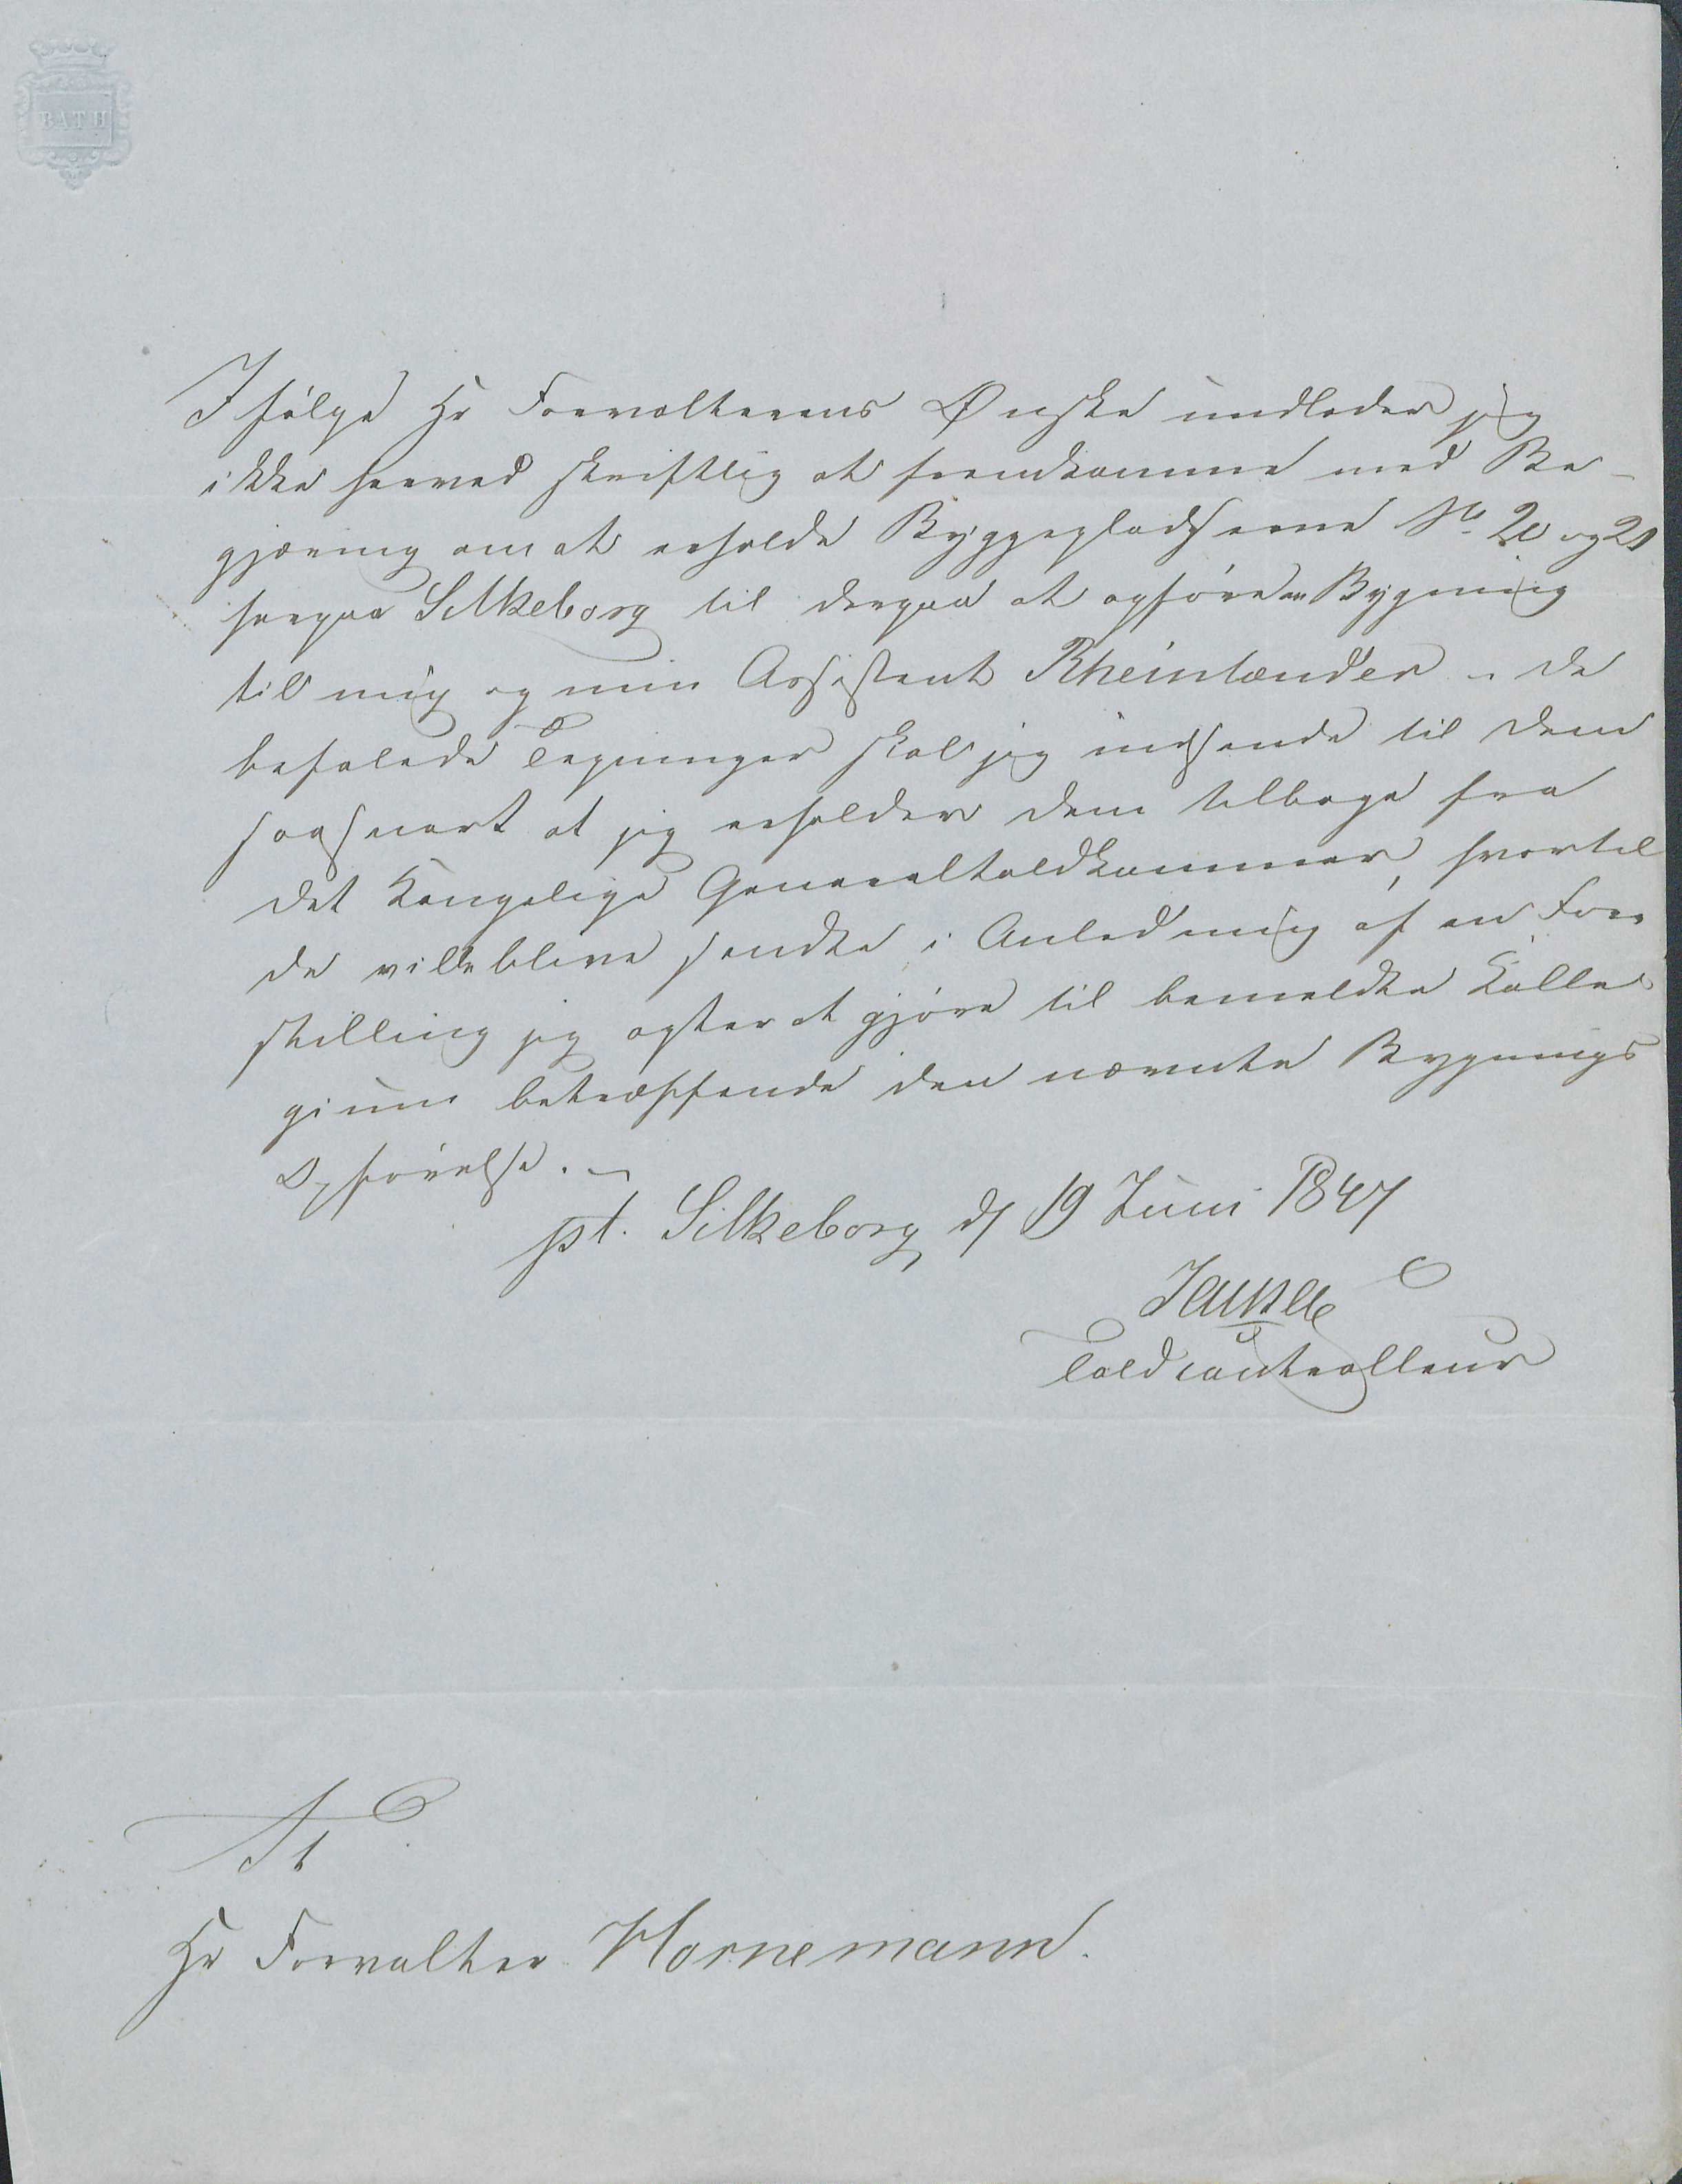 BATH
Ifølge Hr Forvalterens Ønske undlader jeg
ikke herved skriftlig at fremkomme med Be-
gjæring om at erholde Byggepladserne No 20 og 21
herpaa Silkeborg til derpaa at opføre en Bygning
til mig og min Assistent Rheinlænder - de
befalede Tegninger skal jeg indsende til Dem
saasnart at jeg erholder dem tilbage fra
det Kongelige Generaltoldkammer, hvortil
de ville blive sendte i Anledning af en Fore
stilling jeg agter at gjøre til bemeldte Colle
gium betræffende den nævnte Bygnings
Opførelse. -
pt. Silkeborg d/ 19 Juni 1847
Toldcontrolleur
Til
Hr Forvalter Hornemann.